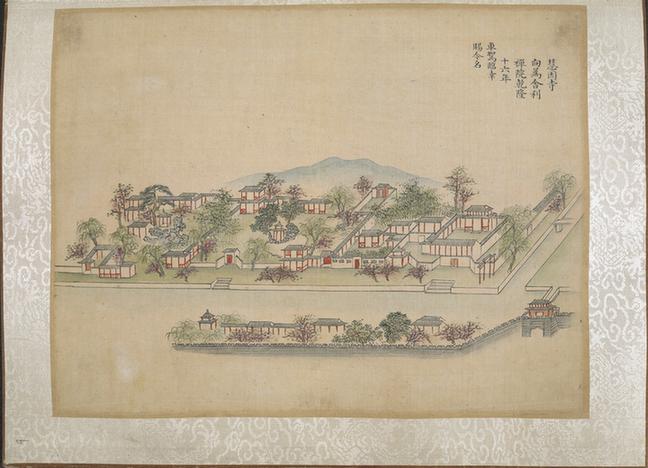 慧因寺
向爲舍利
禪院乾隆
十六年
車駕臨幸
賜今名